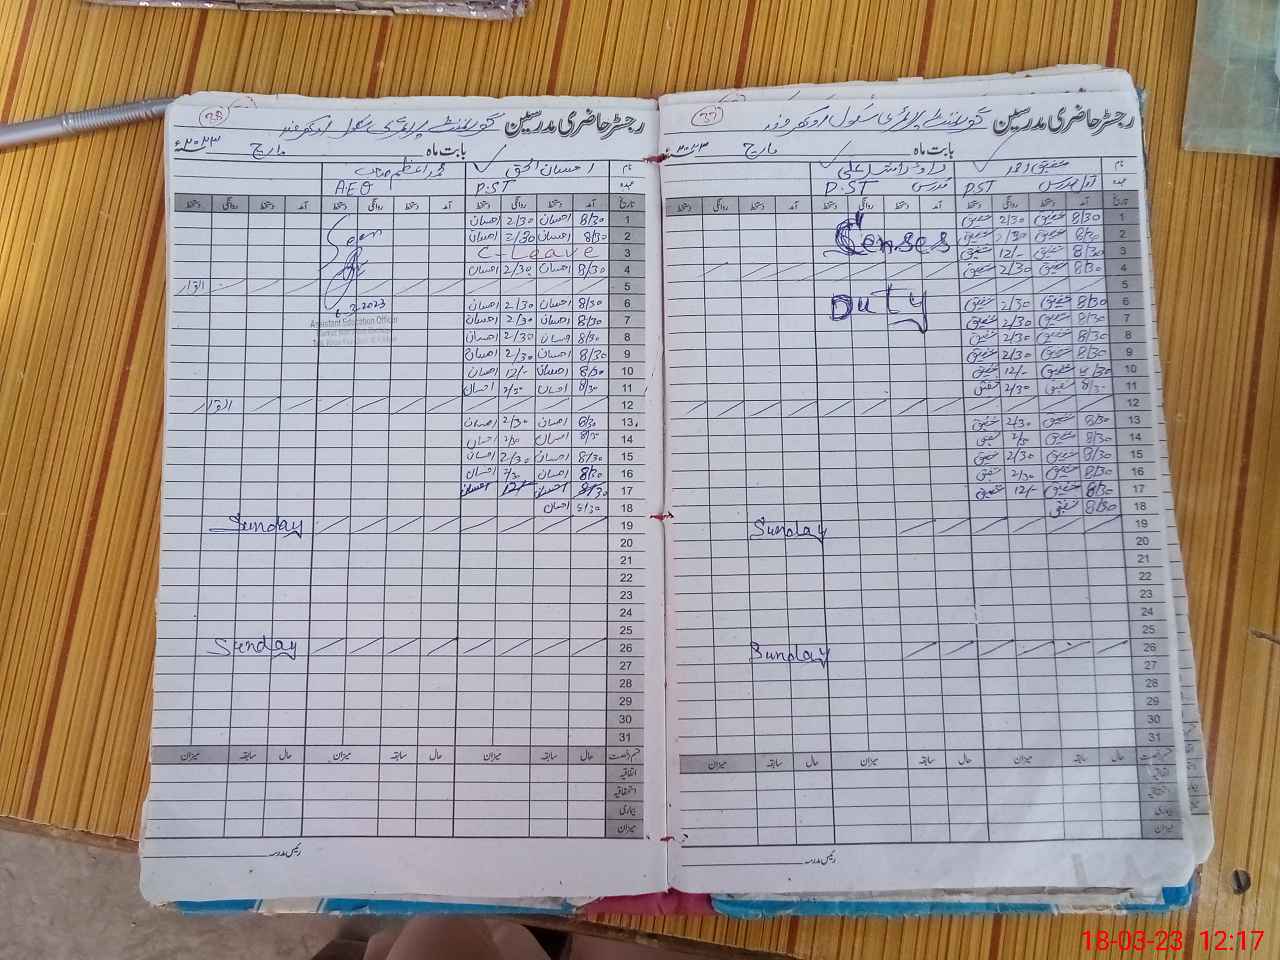 37
رجسٹر حاضری مدرسین گورنمنٹ پرائمری سکول
بابت ماہ مارچ ۲۰۲۳ء
نام شفیق احمد
عہدہ PST مدرس P.ST
تاریخ آمد دستخط روانگی دستخط آمد دستخط روانگی دستخط آمد دستخط روانگی دستخط
1 8/30 شفیق 2/30 شفیق
2 8/30 شفیق شفیق Senses
3 8/30 شفیق 12/- شفیق
4 8/30 شفیق 2/30 شفیق
5
6 8/30 شفیق 2/30 شفیق Duty
7 8/30 شفیق 2/30 شفیق
8 8/30 شفیق 2/30 شفیق
9 8/30 شفیق 2/30 شفیق
10 8/30 شفیق 12/- شفیق
11 شفیق 2/30 شفیق
12
13 8/30 شفیق 2/30 شفیق
14 8/30 شفیق شفیق
15 8/30 شفیق 2/30 شفیق
16 8/30 شفیق 2/30 شفیق
17 8/30 شفیق 12/- شفیق
18 8/30 شفیق
19 Sunday
20
21
22
23
24
25
26 Sunday
27
28
29
30
31
قسم رخصت حال سابقہ میزان حال سابقہ میزان حال سابقہ میزان
اتفاقیہ
استحقاقیہ
بیماری
میزان
رئیس مدرسہ
38
رجسٹر حاضری مدرسین گورنمنٹ پرائمری سکول
بابت ماہ مارچ ۲۰۲۳ء
نام احسان الحق محمد اعظم صاحب
عہدہ P.ST A.E.O
تاریخ آمد دستخط روانگی دستخط آمد دستخط روانگی دستخط آمد دستخط روانگی دستخط
1 8/30 احسان 2/30 احسان Seen
2 8/30 احسان 2/30 احسان
3 C-Leave
4 8/30 احسان 2/30 احسان
5 اتوار
6 8/30 احسان 2/30 احسان 6-3-2023
7 8/30 احسان 2/30 احسان Assistant Education Officer
8 8/30 احسان 2/30 احسان
9 8/30 احسان 2/30 احسان
10 8/30 احسان 12/- احسان
11 8/30 احسان 2/30 احسان
12 اتوار
13 8/30 احسان 2/30 احسان
14 8/30 احسان 2/30 احسان
15 8/30 احسان 2/30 احسان
16 8/30 احسان 2/30 احسان
17 8/30 احسان 12/- احسان
18 8/30 احسان
19 Sunday
20
21
22
23
24
25
26 Sunday
27
28
29
30
31
قسم رخصت حال سابقہ میزان حال سابقہ میزان حال سابقہ میزان
اتفاقیہ
استحقاقیہ
بیماری
میزان
رئیس مدرسہ
18-03-23 12:17